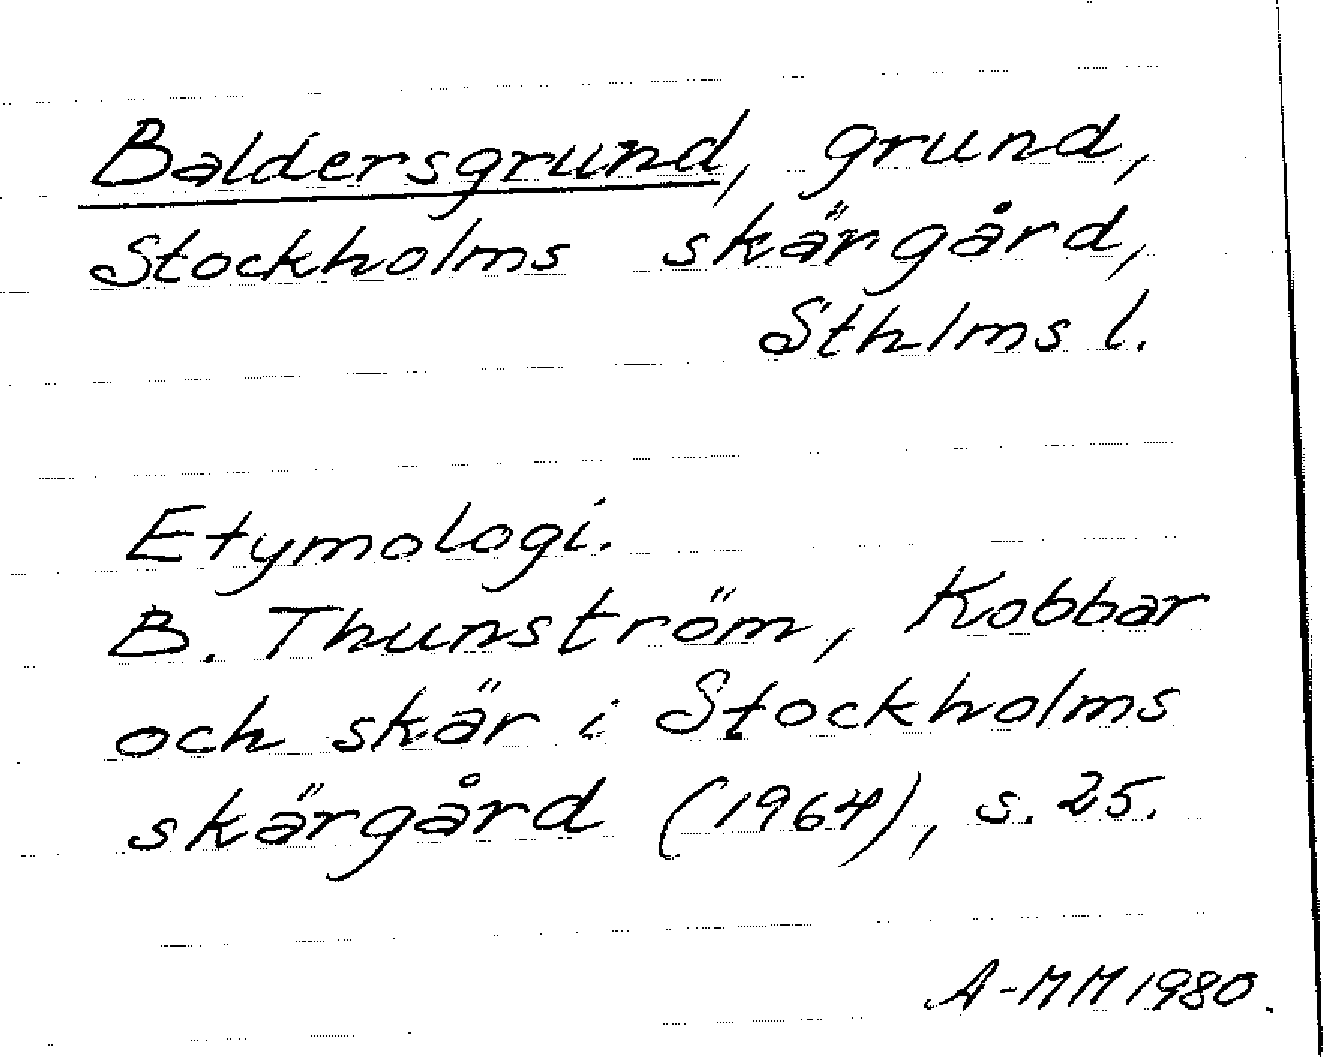 Baldersgrund, grund,
Stockholms skärgård,
Sthlms l.
Etymologi.
B. Thunström, Kobbar
och skär i Stockholms
skärgård (1964), s. 25.
A-MM 1980.